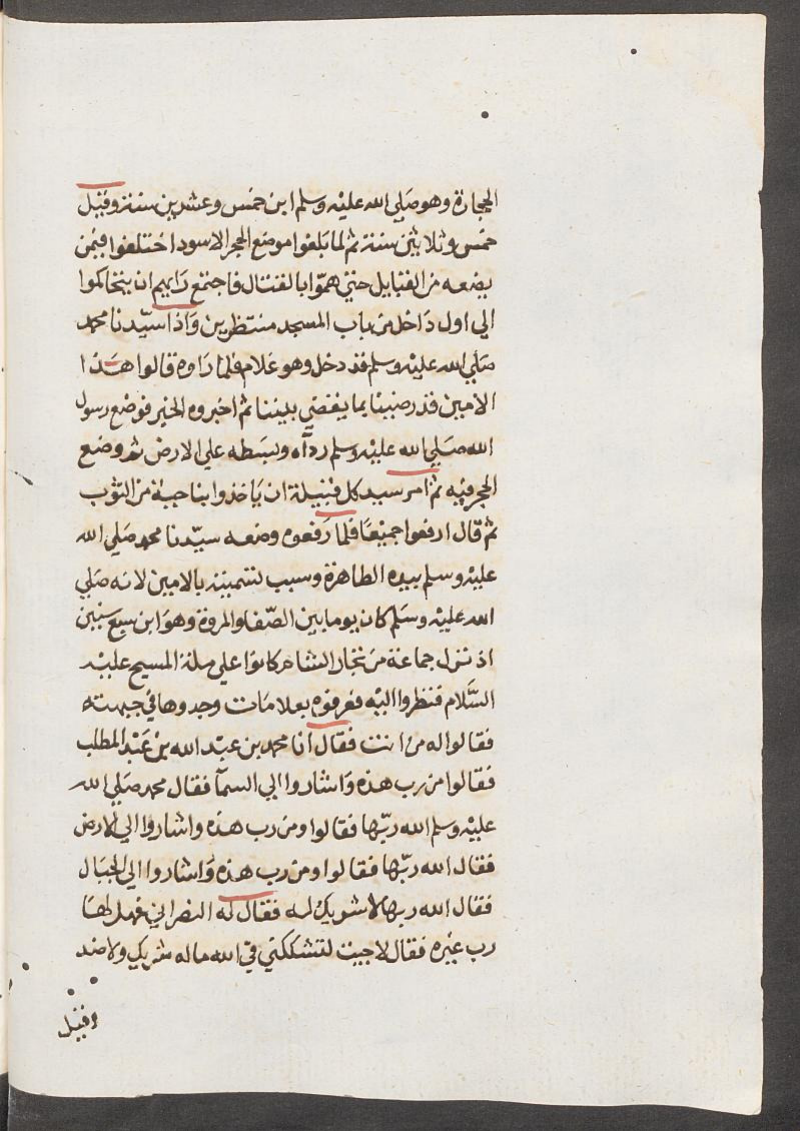 الحجارة وهو صلي الله عليه وسلم ابن خمس وعشرين سنة وقيل
خمس وثلاثين سنة ثم لما بلغوا موضع الحجر الاسود اختلفوا فيمن
يضعه من القبايل حتي همّوا بالقتال فاجتمع رايهم ان يتحاكموا
الي اول داخل من باب المسجد منتظرين واذا سيّدنا محمد
صلي الله عليه وسلم قد دخل وهو غلام فلما راوه قالوا هذا
الامين قد رضينا بما يقضي بيننا ثم اخبروه الخبر فوضع رسول
الله صلي الله عليه وسلم ردآه وبسطه علي الارض ثم وضع
الحجر فيه ثم امر سيد كل قبيلة ان ياخذوا بناحية من الثوب
ثم قال ارفعوا جميعا فلما رفعوه وضعه سيّدنا محمد صلي الله
عليه وسلم بيده الطاهرة وسبب تسميته بالامين لانه صلي
الله عليه وسلم كان يوما بين الصّفا والمروة وهو ابن سبع سنين
اذ نزل جماعة من تجار الشام كانوا علي ملة المسيح عليه
السّلام فنظروا اليه فعرفوه بعلامات وجدوها في جبهته
فقالوا له من انت فقال انا محمد بن عبد الله بن عبد المطلب
فقالوا من رب هذه واشاروا الي السمآ فقال محمد صلي الله
عليه وسلم الله ربّها فقالوا ومن رب هذه واشاروا الي الارض
فقال الله ربّها فقالوا ومن رب هذه واشاروا الي الجبال
فقال الله ربها لا شريك له فقال له النصراني فهل لها
رب غيره فقال لا جيت لتشككني في الله ماله شريك ولا ضد
وقيل